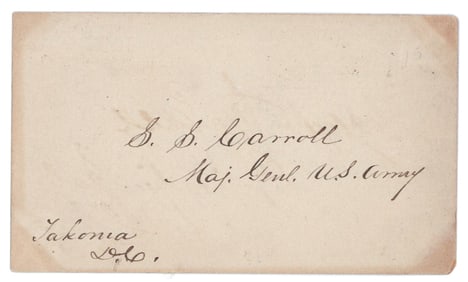 S. S. Carroll
Maj. Genl. U.S. Army
Takoma
D.C.